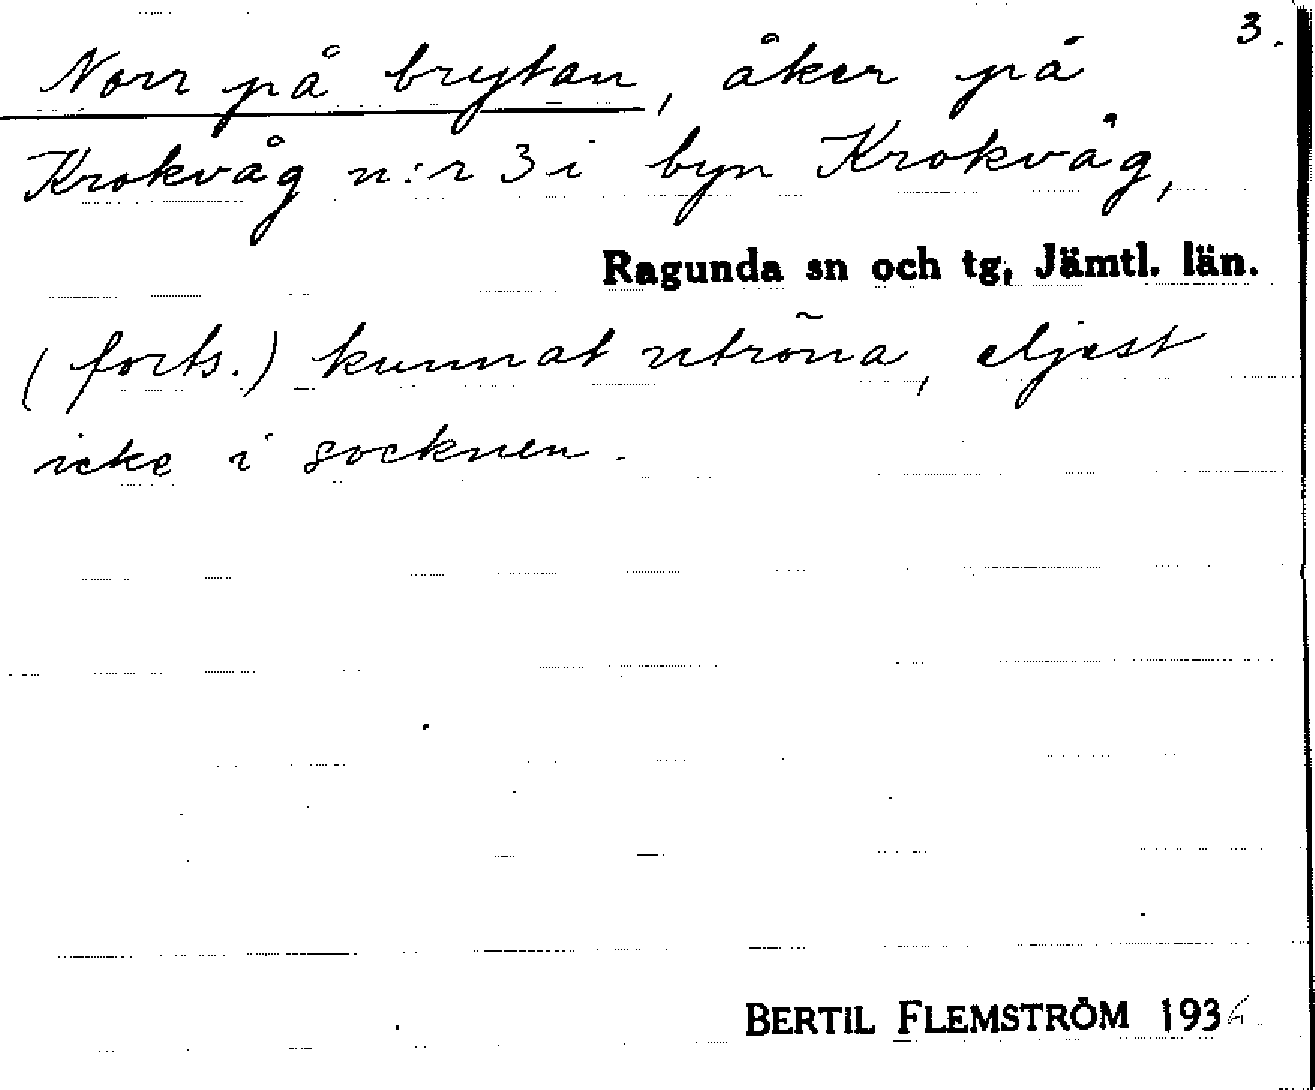 3.
Norr på brytan, åker på
Krokvåg n:r 3 i byn Krokvåg,
Ragunda sn och tg, Jämtl. län.
(forts.) kunnat utröna, eljest
icke i socknen.
BERTIL FLEMSTRÖM 1936